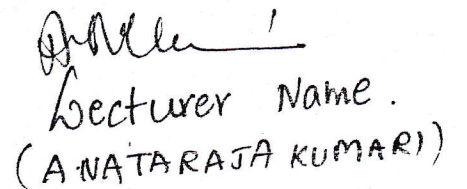 Lecturer Name.
(A NATARAJA KUMARI)